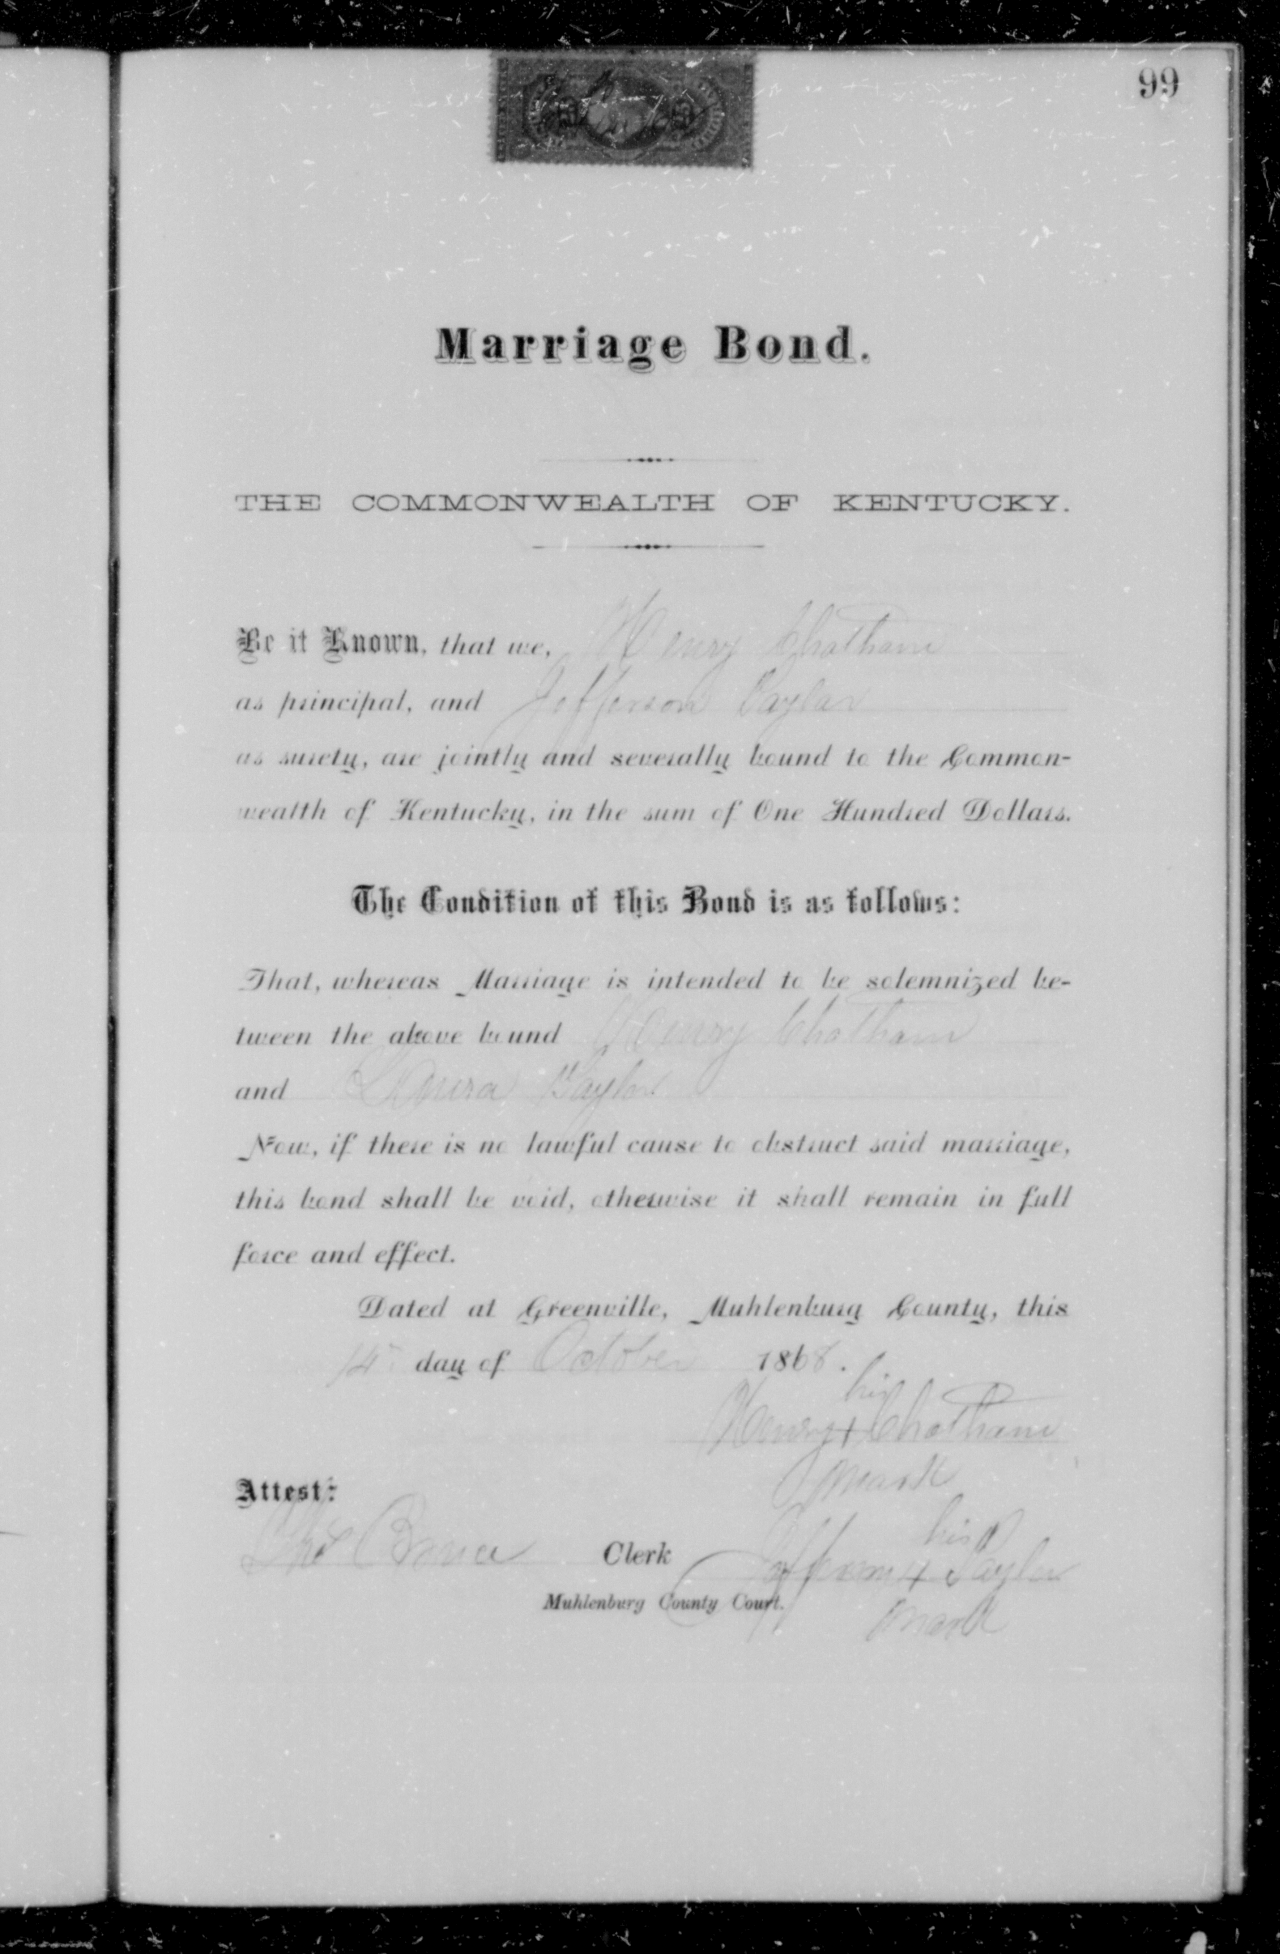 99
Marriage Bond.
THE COMMONWEALTH OF KENTUCKY.
Be it Known, that we, Henry Chatham
as principal, and Jefferson Taylor
as surety, are jointly and severally bound to the Common-
wealth of Kentucky, in the sum of One Hundred Dollars.
The Condition of this Bond is as follows:
That, whereas Marriage is intended to be solemnized be-
tween the above bound Henry Chatham
and Laura Taylor
Now, if there is no lawful cause to obstruct said marriage,
this bond shall be void, otherwise it shall remain in full
force and effect.
Dated at Greenville, Muhlenburg County, this
14 day of October 1868.
his
Henry + Chatham
mark
Attest:
his
Tho Bruce Clerk Jefferson + Taylor
Muhlenburg County Court.
mark